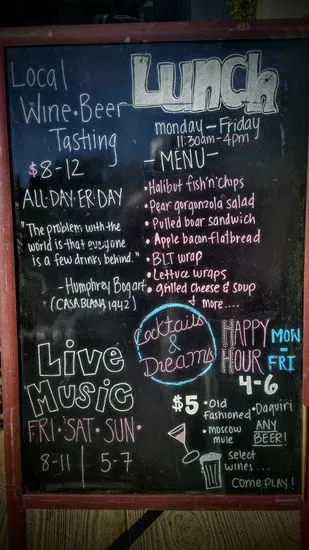 Local
Wine • Beer
Tasting
$8-12
ALL•DAY•ER•DAY
"The problem with the
world is that everyone
is a few drinks behind."
-Humphrey Bogart
(CASABLANA, 1942)
Lunch
monday - Friday
11:30am-4pm
-MENU-
•Halibut fish'n'chips
•Pear gorgonzola salad
•Pulled boar sandwich
•Apple bacon-flatbread
•BLT wrap
•Lettuce wraps
•grilled cheese & soup
& more....
Cocktails
&
Dreams
Live
Music
FRI•SAT•SUN•
8-11 | 5-7
HAPPY
HOUR
MON
-
FRI
4-6
$5
•Old
Fashioned
•Daquiri
•moscow
mule
ANY
BEER!
select
wines...
come play!